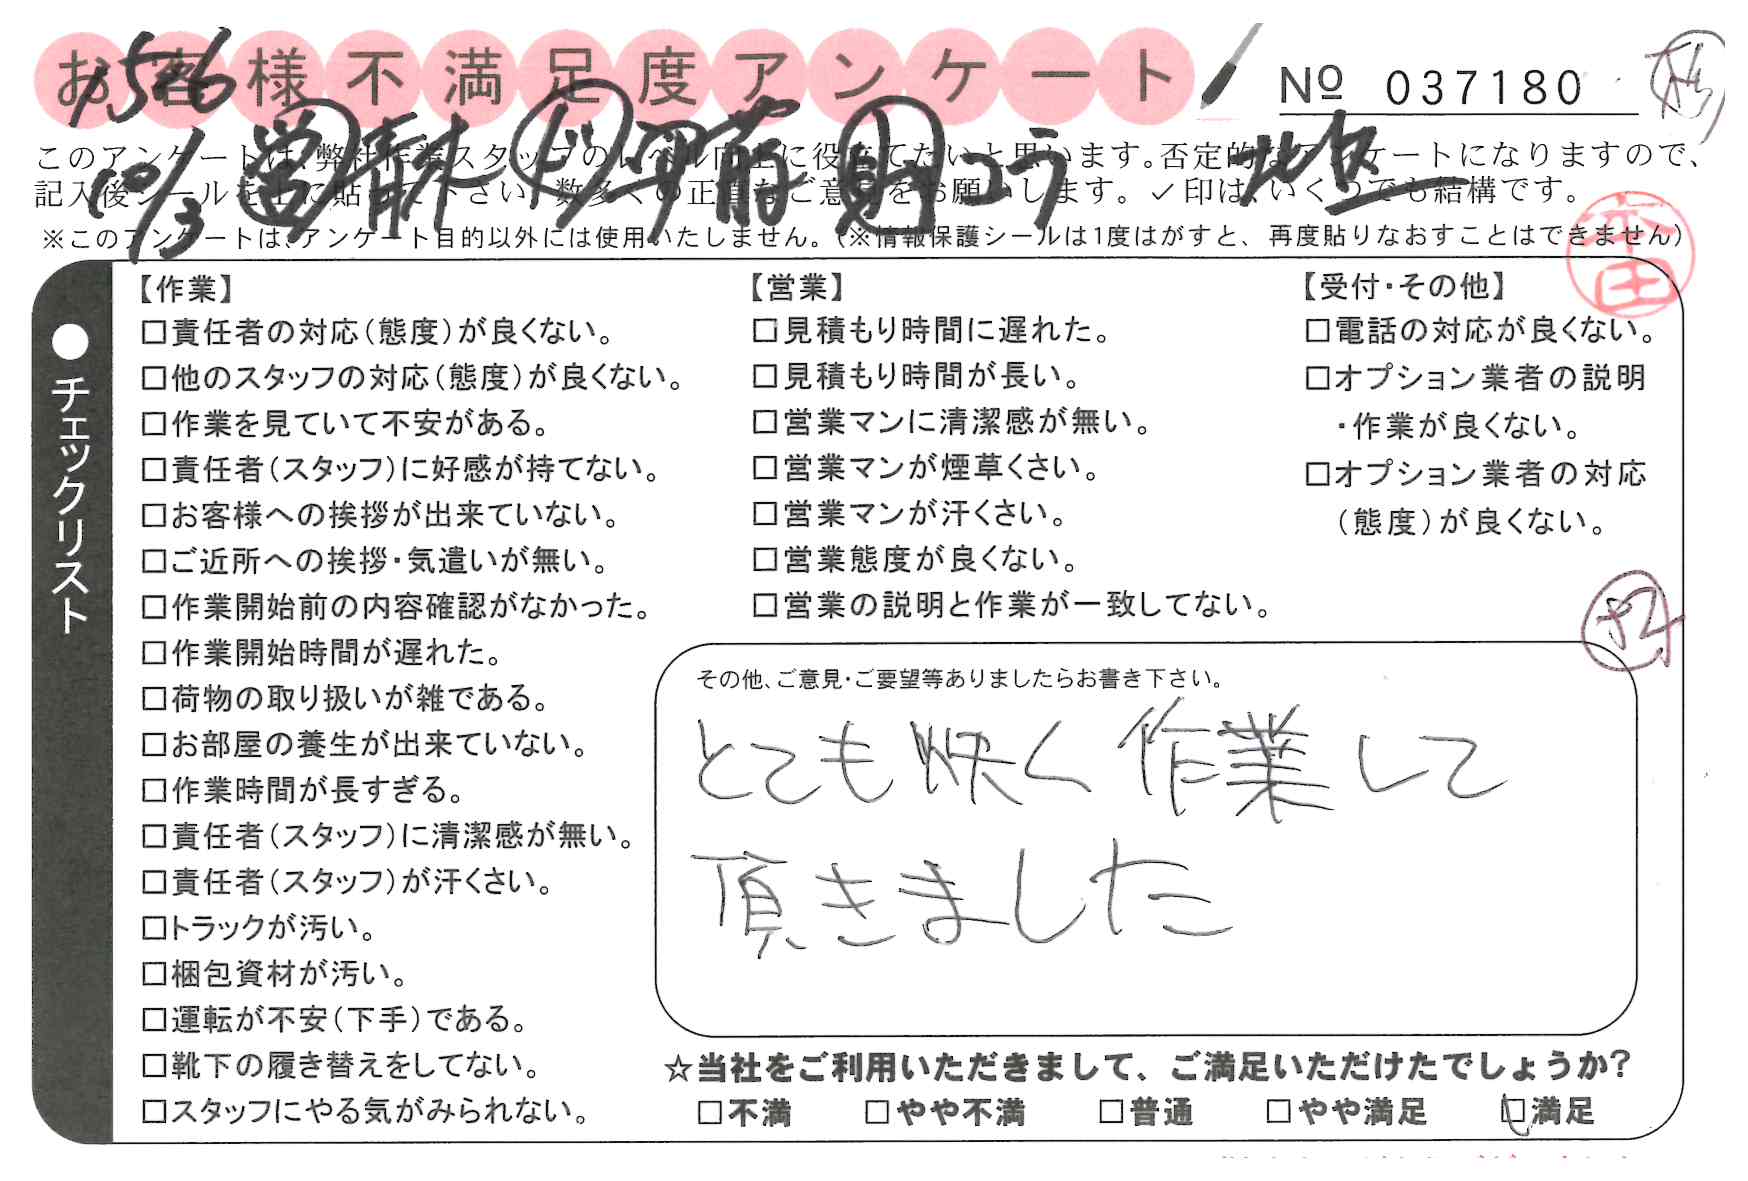 お客様不満足度アンケート
№ 037180
1586
10/3 営 青木 ド 平前 見 コウ
このアンケートは、弊社作業スタッフのレベル向上に役立てたいと思います。否定的なアンケートになりますので、
記入後シールを上に貼って下さい。数多くの正直なご意見をお願いします。✓印は、いくつでも結構です。
※このアンケートは、アンケート目的以外には使用いたしません。(※情報保護シールは1度はがすと、再度貼りなおすことはできません)
●チェックリスト
【作業】
□責任者の対応(態度)が良くない。
□他のスタッフの対応(態度)が良くない。
□作業を見ていて不安がある。
□責任者(スタッフ)に好感が持てない。
□お客様への挨拶が出来ていない。
□ご近所への挨拶・気遣いが無い。
□作業開始前の内容確認がなかった。
□作業開始時間が遅れた。
□荷物の取り扱いが雑である。
□お部屋の養生が出来ていない。
□作業時間が長すぎる。
□責任者(スタッフ)に清潔感が無い。
□責任者(スタッフ)が汗くさい。
□トラックが汚い。
□梱包資材が汚い。
□運転が不安(下手)である。
□靴下の履き替えをしてない。
□スタッフにやる気がみられない。
【営業】
□見積もり時間に遅れた。
□見積もり時間が長い。
□営業マンに清潔感が無い。
□営業マンが煙草くさい。
□営業マンが汗くさい。
□営業態度が良くない。
□営業の説明と作業が一致してない。
【受付・その他】
□電話の対応が良くない。
□オプション業者の説明
・作業が良くない。
□オプション業者の対応
(態度)が良くない。
その他、ご意見・ご要望等ありましたらお書き下さい。
とても快く作業して
頂きました
☆当社をご利用いただきまして、ご満足いただけたでしょうか?
□不満 □やや不満 □普通 □やや満足 ☑満足